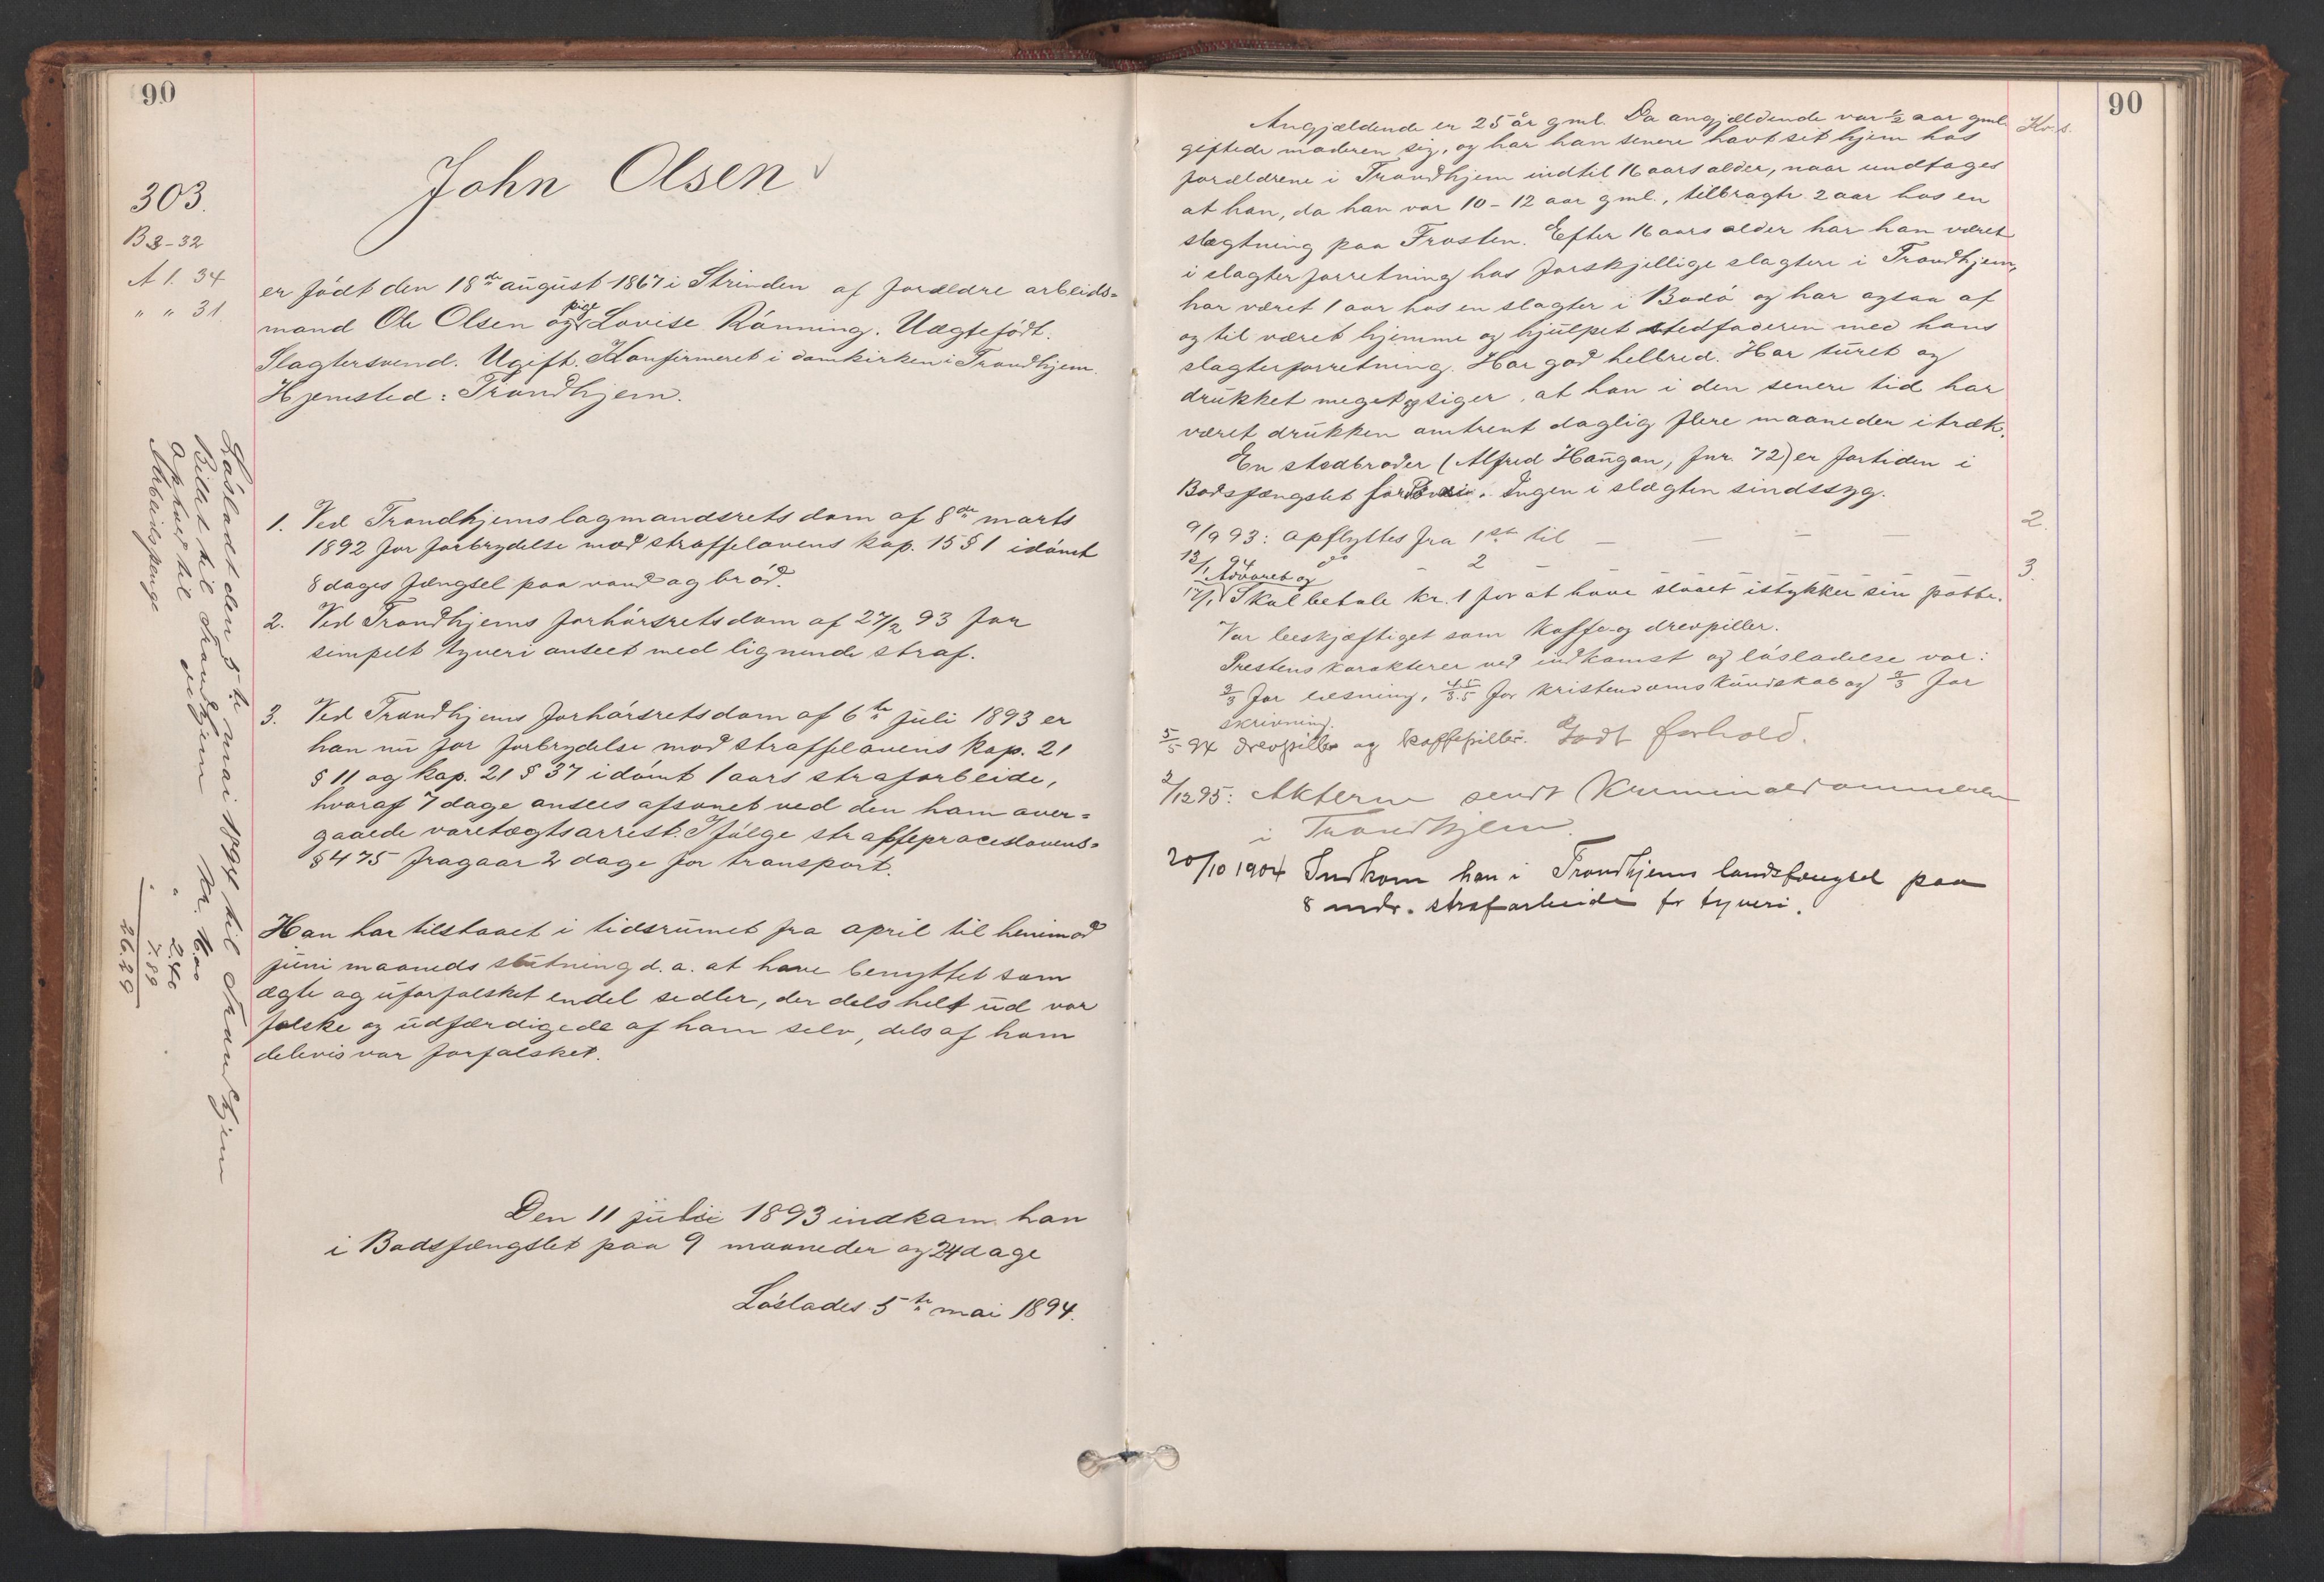 90
303.
B 2-32
A 1. 34
" " 31.
John Olsen
er født den 18de august 1867 i Strinden af forældre arbeids-
mand Ole Olsen og pige Lovise Rønning. Uægtefødt.
Slagtersvend. Ugift. Konfirmeret i domkirken i Trondhjem.
Hjemsted: Trondhjem.
1. Ved Trondhjems lagmandsrets dom af 8de marts
1892 for forbrydelse mod straffelovens kap. 15 § 1 idømt
8 dages fængsel paa vand og brød.
2. Ved Trondhjems forhørsretsdom af 27/2 93 for
simpelt tyveri anseet med lignende straf.
3. Ved Trondhjems forhørsretsdom af 6te juli 1893 er
han nu for forbrydelse mod straffelovens kap. 21
§ 11 og kap. 21 § 37 idømt 1 aars strafarbeide,
hvoraf 7 dage ansees afsonet ved den ham over-
gaaede varetægtsarrest. Ifølge straffeproceslovens-
§ 475 fragaar 2 dage for transport.
Han har tilstaaet i tidsrummet fra april til henimod
juni maaneds slutning d. a. at have benyttet som
ægte og uforfalsket endel sedler, der dels helt ud var
falske og udfærdigede af ham selv, dels af ham
delevis var forfalsket.
Den 11 juli 1893 indkom han
i Bodsfængslet paa 9 maaneder og 24 dage
Løslades 5te mai 1894.
Løsladt den 5te mai 1894 til Trondhjem
Billet til Trondhjem Kr. 16.00
Ophold til do " 2.40
Arbeidspenge " 7.89
26.29
90
Angjældende er 25 år gml. Da angjældende var 1/2 aar gml.
giftede moderen sig, og har han senere havt sit hjem hos
forældrene i Trondhjem indtil 16 aars alder, naar undtages
at han, da han var 10-12 aar gml., tilbragte 2 aar hos en
slægtning paa Frosten. Efter 16 aars alder har han været
i slagterforretning hos forskjellige slagtere i Trondhjem,
har været 1 aar hos en slagter i Bodø og har ogsaa af
og til været hjemme og hjulpet stedfaderen med hans
slagterforretning. Har god helbred. Har turet og
drukket meget og siger, at han i den senere tid har
været drukken omtrent daglig flere maaneder itræk.
En stedbroder (Alfred Haugan, fnr. 72) er fortiden i
Bodsfængslet for. Ingen i slægten sindssyg.
9/9 93: opflyttes fra 1ste til — — — — 2.
12/1 94 do - 2 - - - - 3.
17/1 Advaret og Skal betale kr. 1 for at have slaaet istykker sin potte.
Var beskjæftiget som kaffe- og drevpiller.
Prestens karakterer ved indkomst og løsladelse var:
2/3 for læsning, 4.5/3.5 for kristendomskundskab og 2/3 for
skrivning.
5/5 94 drevpiller og kaffepiller. Godt forhold.
2/12 95: Akterne sendt Kriminaldommeren
i Trondhjem.
20/10 1904 Indkom han i Trondhjems landsfængsel paa
8 mdr. strafarbeide for tyveri.